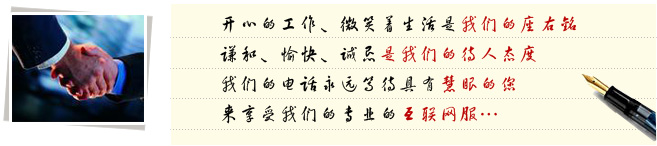 开心的工作、微笑着生活是我们的座右铭
谦和、愉快、诚恳是我们的待人态度
我们的电话永远等待具有慧眼的您
来享受我们的专业的互联网服…